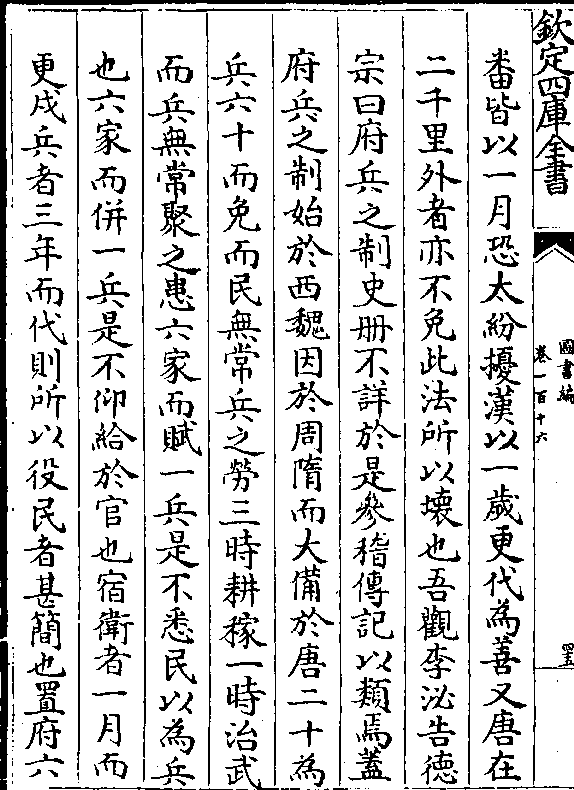 欽定四庫全書
圖書編
卷一百十六
番皆以一月恐太紛擾漢以一歳更代為善又唐在
二千里外者亦不免此法所以壊也吾觀李泌告徳
宗曰府兵之制史册不詳於是參稽傳記以類焉蓋
府兵之制始於西魏因於周隋而大備於唐二十為
兵六十而免而民無常兵之勞三時耕稼一時治武
而兵無常聚之患六家而賦一兵是不悉民以為兵
也六家而併一兵是不仰給於官也宿衛者一月而
更戍兵者三年而代則所以役民者甚簡也置府六